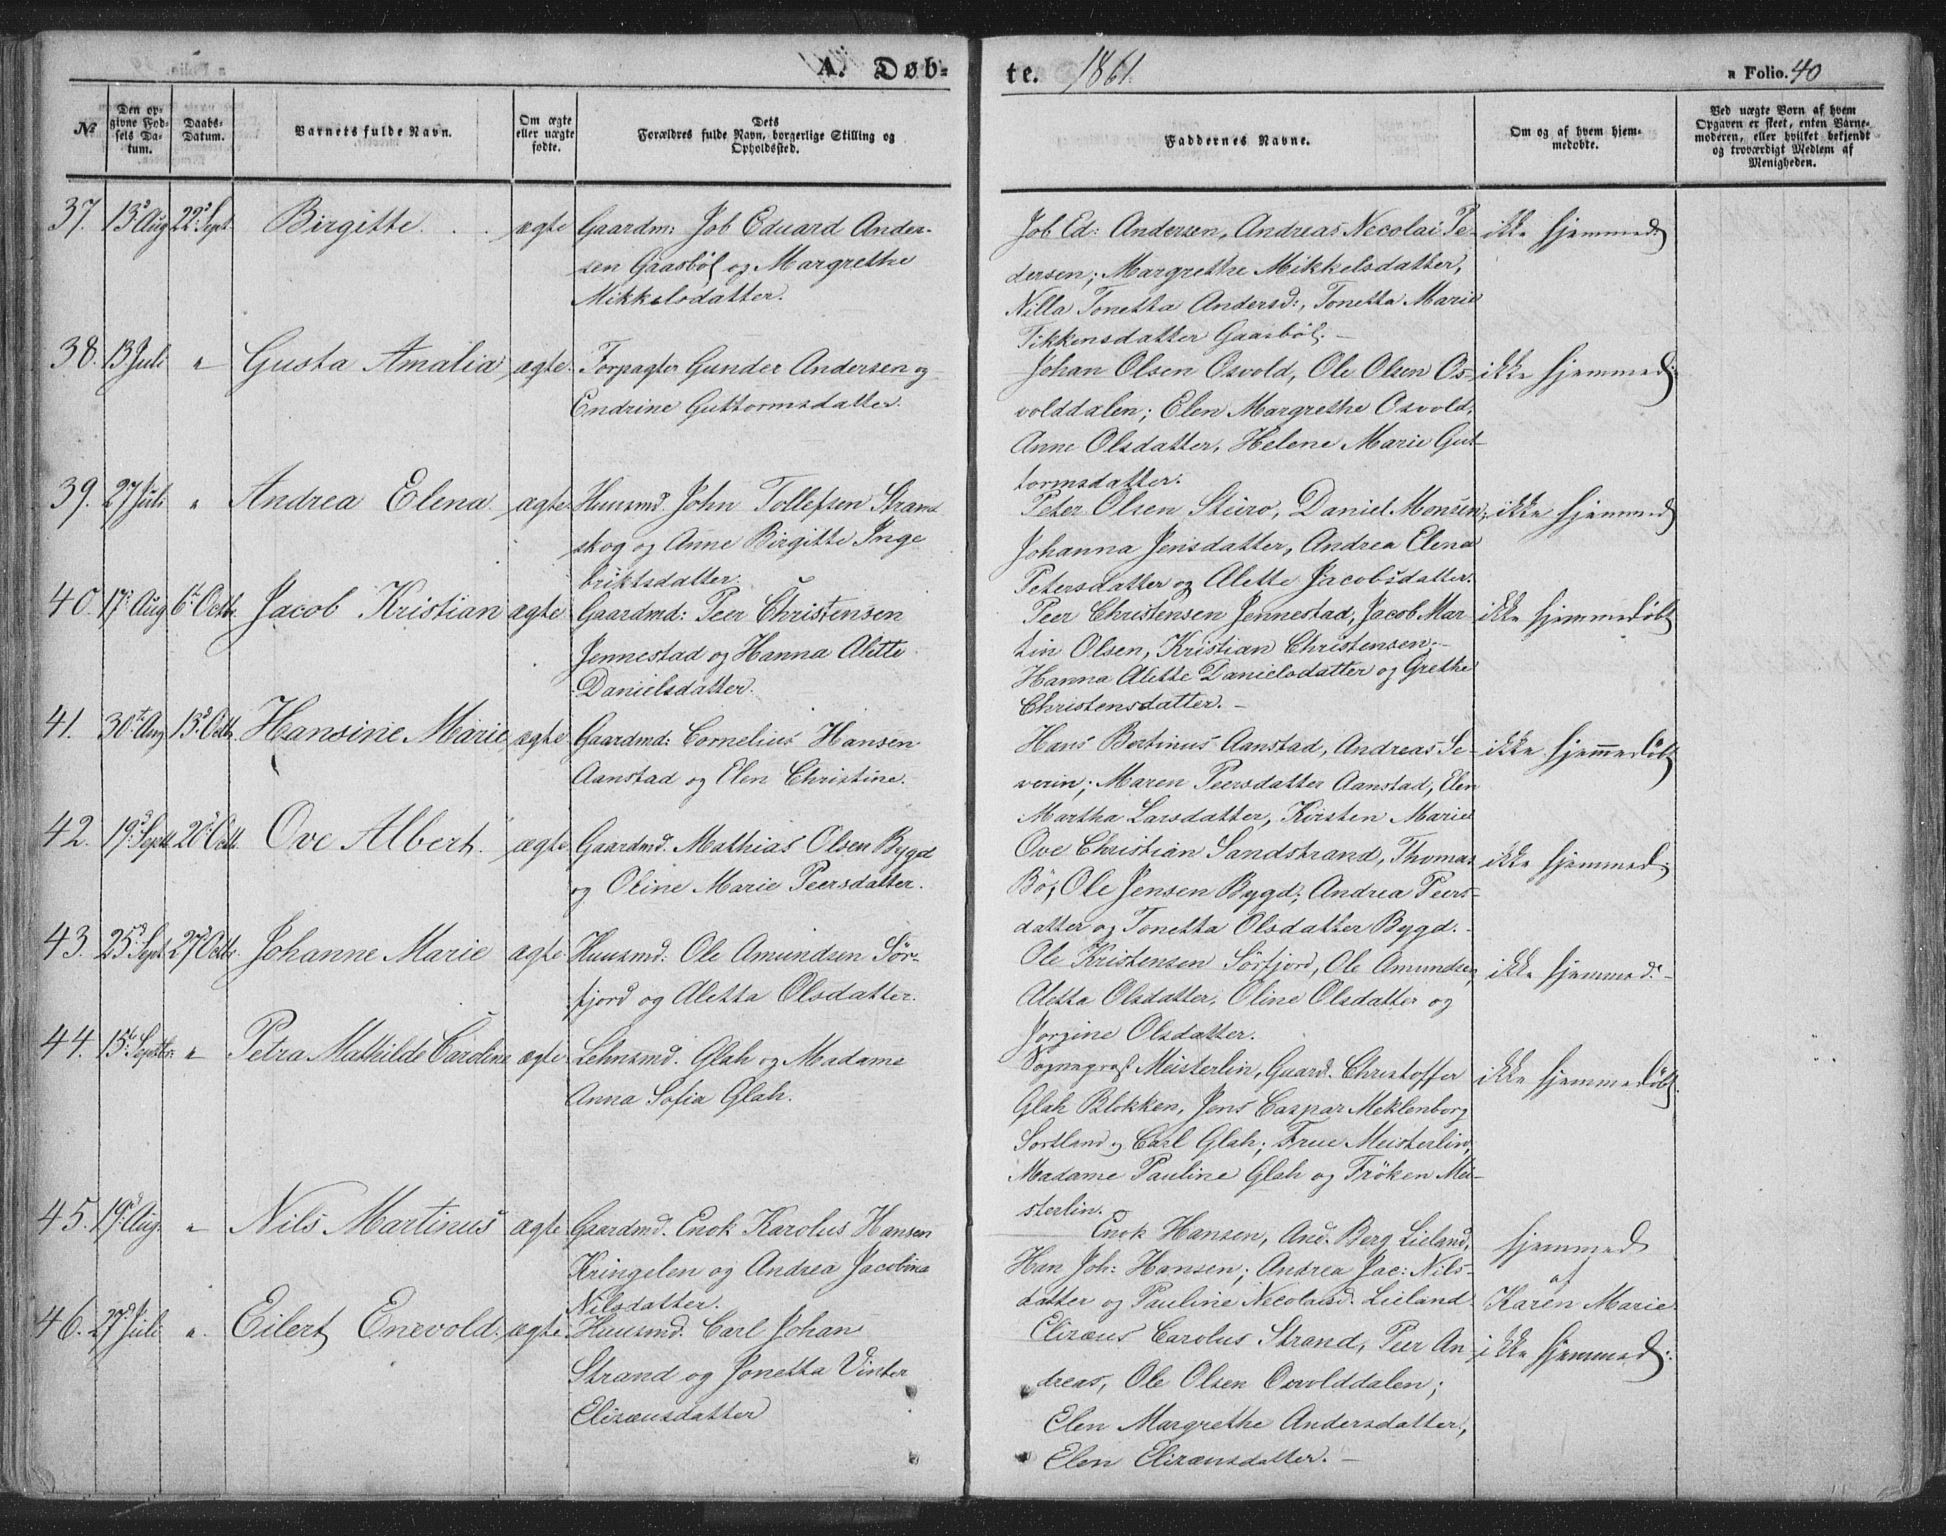 A. Døb-
te. 1861.
a Folio. 40
№
Den op-
givne Fød-
sels Da-
tum.
Daabs-
Datum.
Barnets fulde Navn.
Om ægte
eller uægte
fødte.
Dets
Forældres fulde Navn, borgerlige Stilling og
Opholdssted.
Faddernes Navne.
Om og af hvem hjem-
medøbte.
Ved uægte Børn af hvem
Opgaven er skeet, enten Barne-
moderen, eller hvilket bekjendt
og troværdigt Medlem af
Menigheden.
37. 13de Aug 22de Sept. Birgitte. ægte
Gaardm: Job Eduard Ander-
sen Gaasböl og Margrethe
Mikkelsdatter.
Job Ed: Andersen, Andreas Necolai Pe-
dersen; Margrethe Mikkelsdatter,
Nilla Tonetta Andersd:, Tonetta Marie
Tikkensdatter Gaasböl. –
ikke hjemmed
38. 13 Juli " Gusta Amalia ægte.
Forpagter Gunder Andersen og
Endrine Guttormsdatter.
Johan Olsen Osvold, Ole Olsen Os-
volddalen; Elen Margrethe Osvold,
Anne Olsdatter, Helene Marie Gut-
tormsdatter.
ikke hjemmed:
39. 27 Juli " Andrea Elena. ægte.
Huusmd. John Tollefsen Strand
skog og Anne Birgitte Inge
briktsdatter.
Peter Olsen Steiro, Daniel Monsen;
Johanna Jensdatter, Andrea Elena
Petersdatter og Alette Jacobsdatter.
ikke hjemmed
40. 17de Aug 6te Octb. Jacob Kristian ægte
Gaardmd: Peer Christensen
Jennestad og Hanna Alette
Danielsdatter.
Peer Christensen Jennestad, Jacob Mar-
tin Olsen, Kristian Christensen; –
Hanna Alette Danielsdatter og Grethe
Christensdatter. –
ikke hjemmedöbt
41. 30te Aug 13de Octb. Hansine Marie ægte
Gaardmd: Cornelius Hansen
Aanstad og Elen Christine.
Hans Bertinus Aanstad, Andreas Se-
verin; Maren Peersdatter Aanstad, Elen
Martha Larsdatter, Kirsten Marie
ikke hjemmedöbt
42. 19de Septb 20de Octb. Ove Albert. ægte
Gaardmd. Mathias Olsen Bygd
og Oline Marie Peersdatter.
Ove Christian Sandstrand, Thomas
Bö, Ole Jensen Bygd; Andrea Peers-
datter og Tonetta Olsdatter Bygd. –
ikke hjemmed:
43. 25de Sept. 27de Octb. Johanne Marie ægte
Huusmd: Ole Amundsen Sör-
fjord og Aletta Olsdatter.
Ole Kristensen Sörfjord, Ole Amundsen,
Aletta Olsdatter, Oline Olsdatter og
Jorgine Olsdatter.
ikke hjemmed: –
44. 15de Septbr: " Petra Mathilde Caroline ægte
Lehnsmd. Glah og Madame
Anna Sofia Glah.
Sognepræst Meisterlin, Gaard. Christoffer
Glah Blokken, Jens Caspar Meklenborg
Sortland og Carl Glah; Frue Meisterlin,
Madame Pauline Glah og Fröken Mei-
sterlin.
ikke hjemmedöbt.
45. 19de Aug. " Nils Martinus ægte
Gaardmd. Enok Karolus Hansen
Kringelen og Andrea Jacobina
Nilsdatter.
Enok Hansen, And. Berg Lieland,
Han Joh: Hansen; Andrea Jac: Nils-
datter og Pauline Necolaisd. Lieland
hjemmed
af
Karen Marie
46. 27de Juli ". Eilert Enevold. ægte
Huusmd. Carl Johan
Strand og Jonetta Vinter
Elisæusdatter
Elisæus Carolus Strand, Peer An-
dreas, Ole Olsen Osvolddalen;
Elen Margrethe Andersdatter,
Elen Elisæusdatter. –
ikke hjemmed: